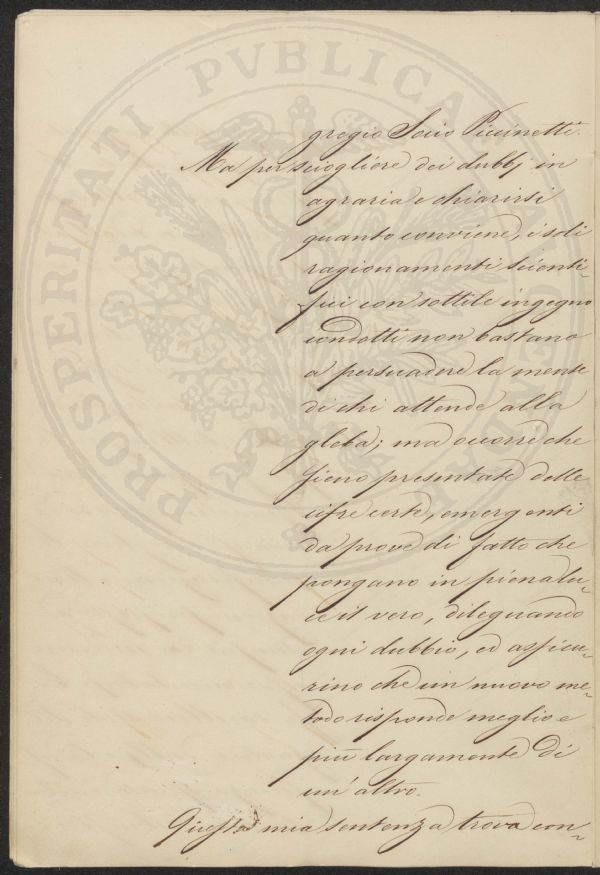 gregio Socio Piccinetti.
Ma per sciogliere dei dubbj in
agraria e chiarirsi
quanto conviene, i soli
ragionamenti scienti-
fici con sottile ingegno
condotti non bastano
a persuadere la mente
di chi attende alla
gleba; ma occorre che
sieno presentate delle
cifre certe, emergenti
da prove di fatto che
pongano in piena lu-
ce il vero, dileguando
ogni dubbio, ed assicu-
rino che un nuovo me-
todo risponde meglio e
più largamente di
un'altro.
Questa mia sentenza trova con-
PROSPERITATI PVBLICAE AVGENDAE